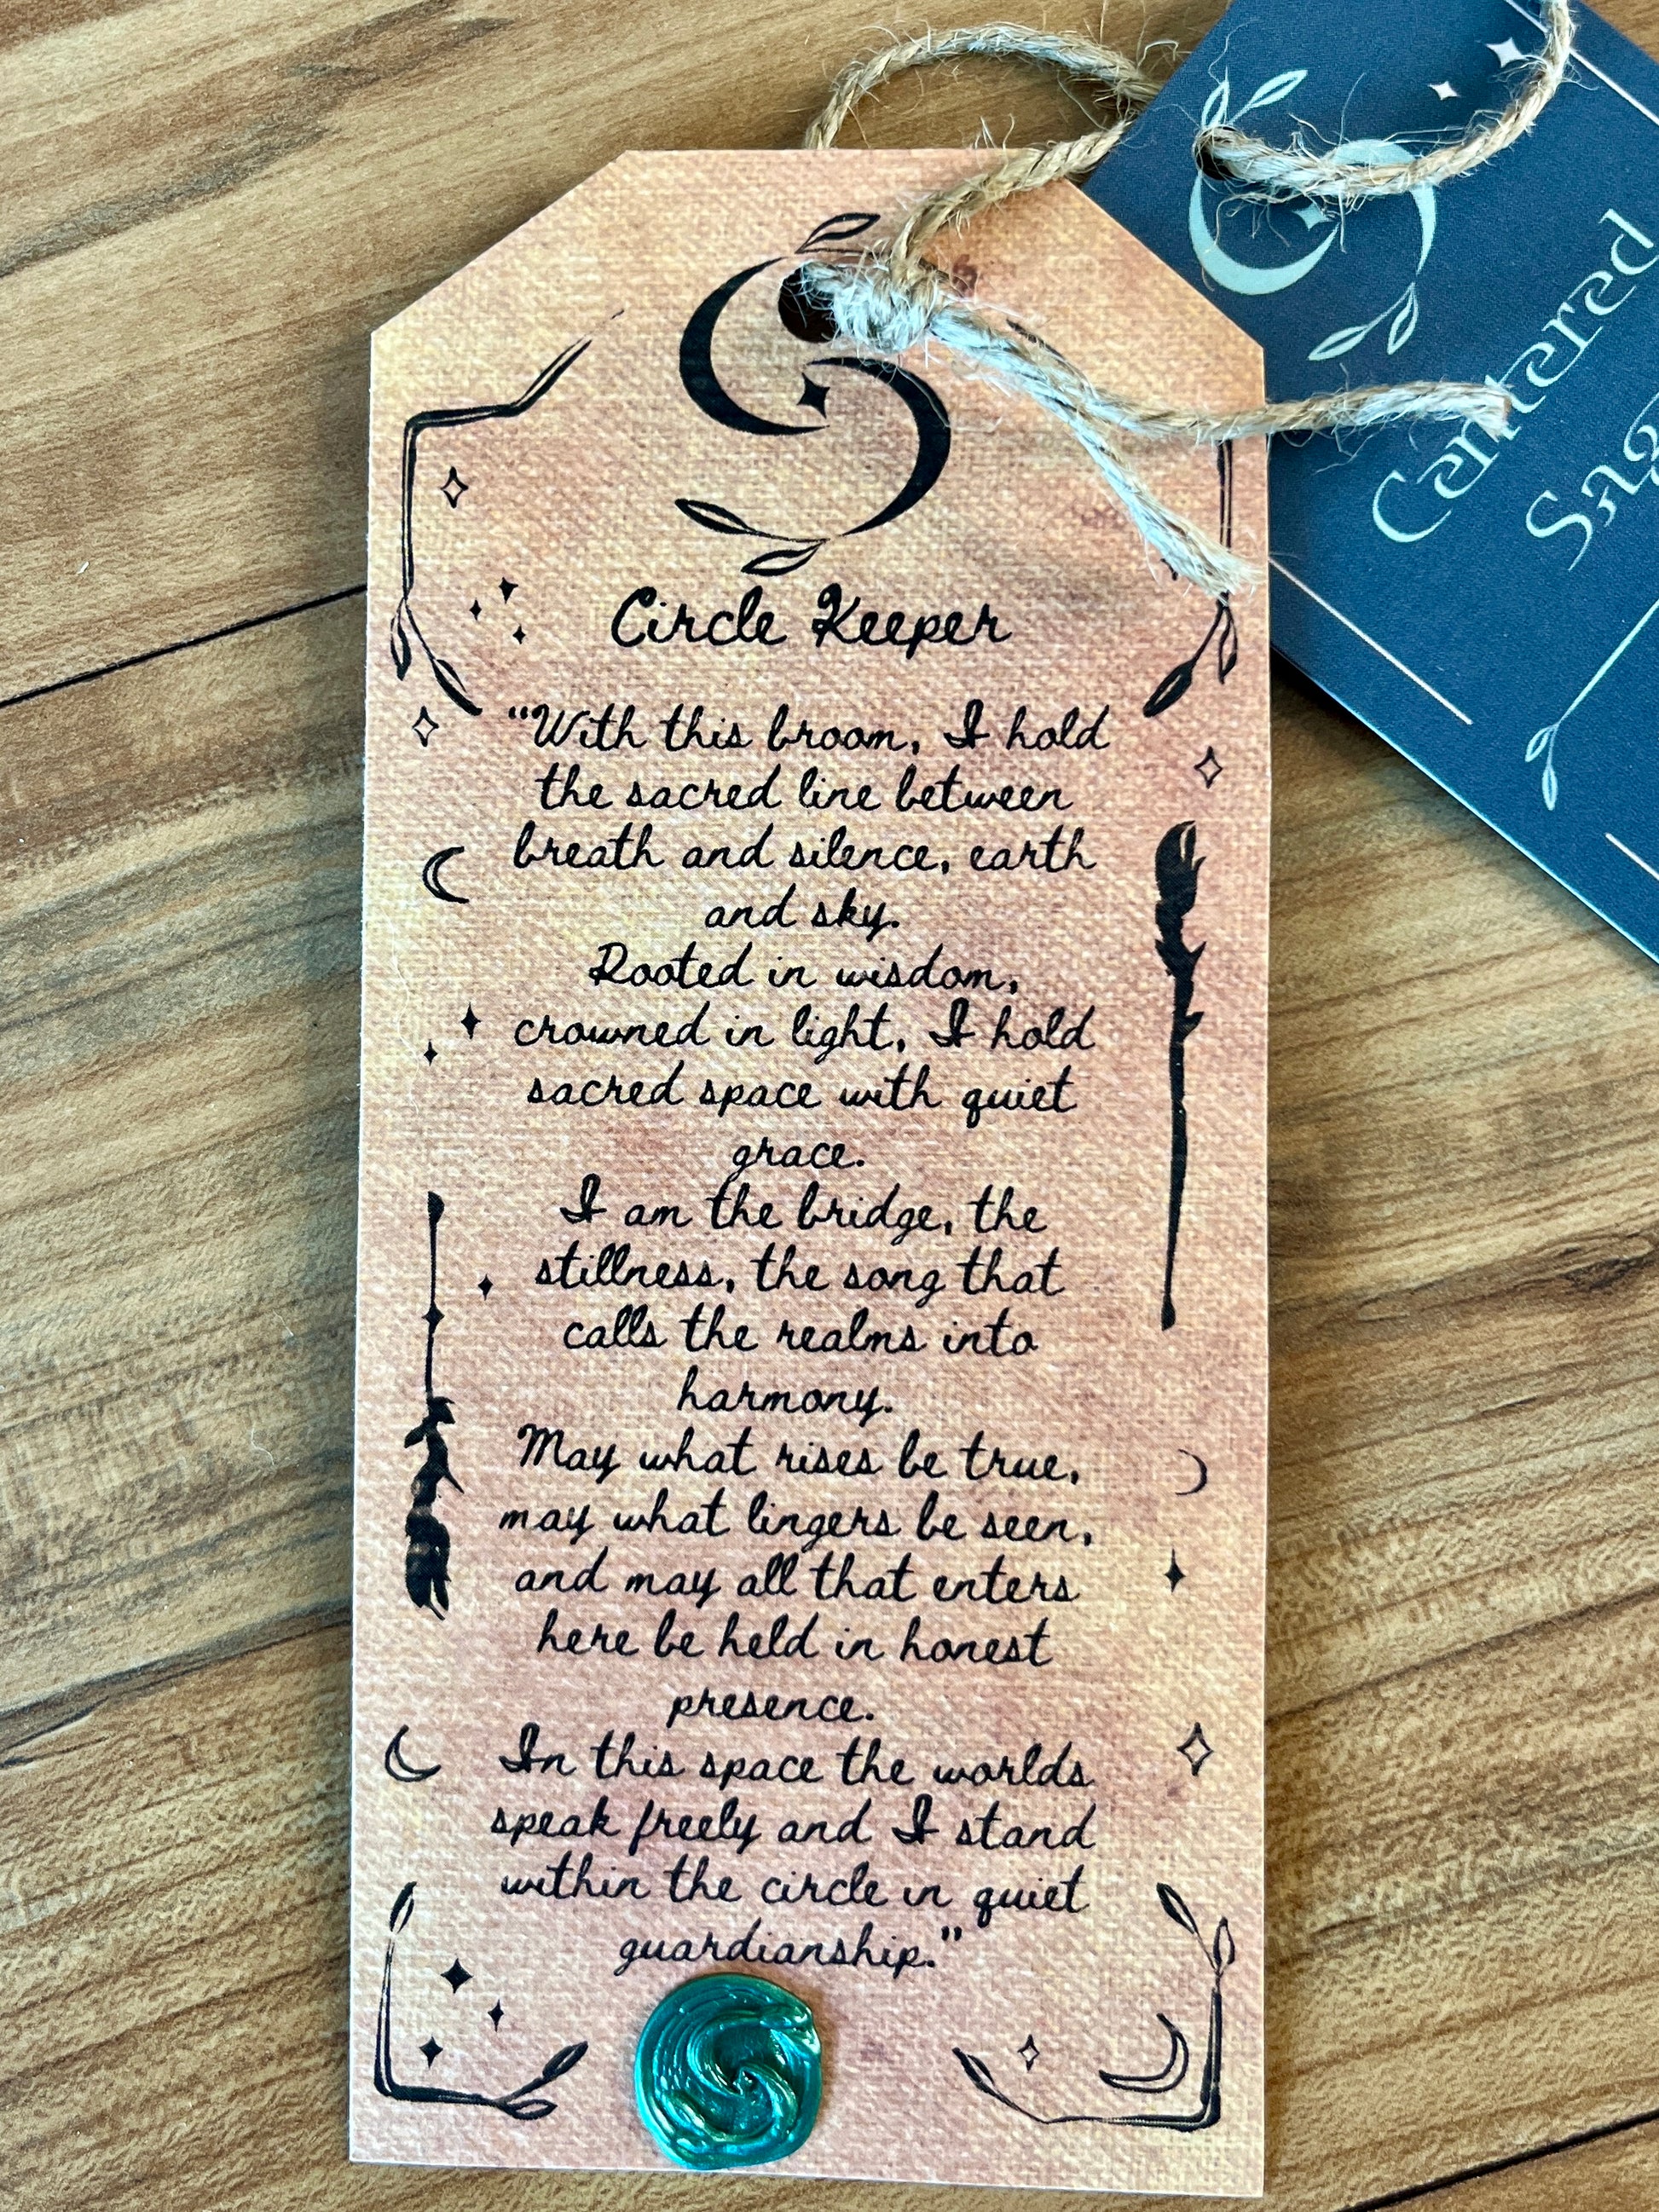 Circle Keeper
"With this broom, I hold
the sacred line between
breath and silence, earth
and sky.
Rooted in wisdom,
crowned in light, I hold
sacred space with quiet
grace.
I am the bridge, the
stillness, the song that
calls the realms into
harmony.
May what rises be true,
may what lingers be seen,
and may all that enters
here be held in honest
presence.
In this space the worlds
speak freely and I stand
within the circle in quiet
guardianship."
Centered